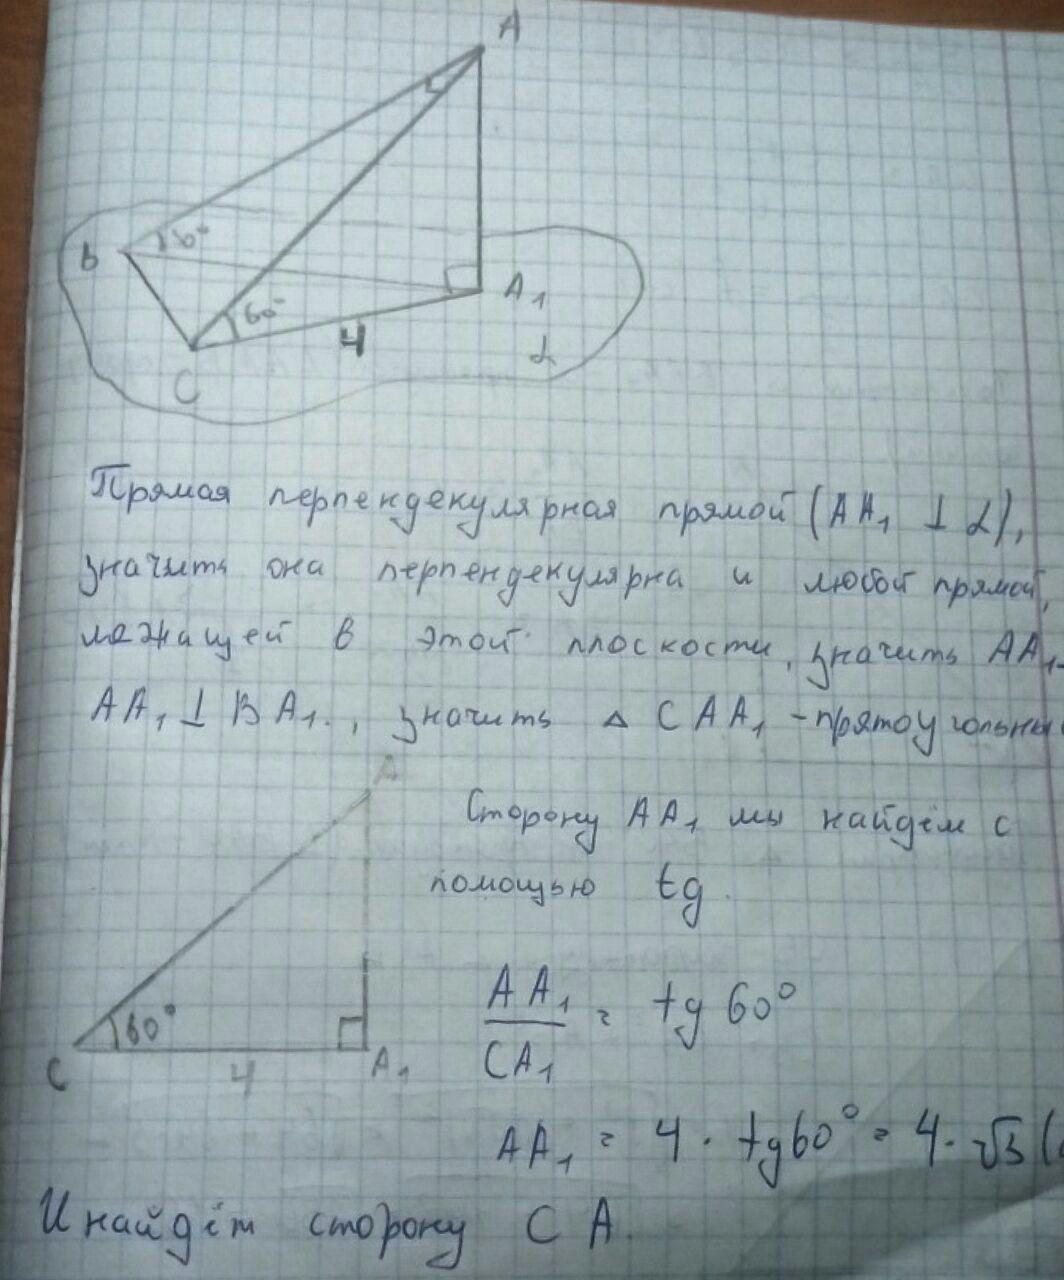 A
B
6°
60°
A₁
4
C
α
Прямая перпендекулярная прямой (AA₁ ⊥ α),
значить она перпендекулярна и любой прямой,
лежащей в этой плоскости, значить AA₁
AA₁ ⊥ BA₁., значить △ CAA₁ - прямоугольны
A
Сторону AA₁ мы найдём с
помощью tg.
AA₁
CA₁
= tg 60°
60°
C
4
A₁
AA₁ = 4 · tg60° = 4 · √3 (
И найдём сторону CA.